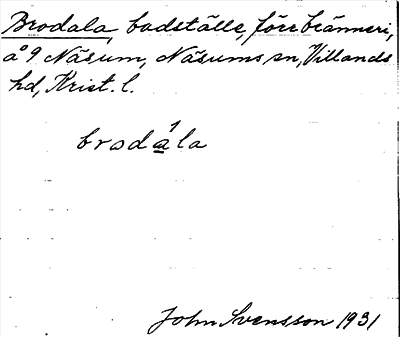 Brodala, badställe, förr bränneri,
å 9 Näsum, Näsums sn, Villands
hd, Krist. l.
broda̲´la
John Svensson 1931